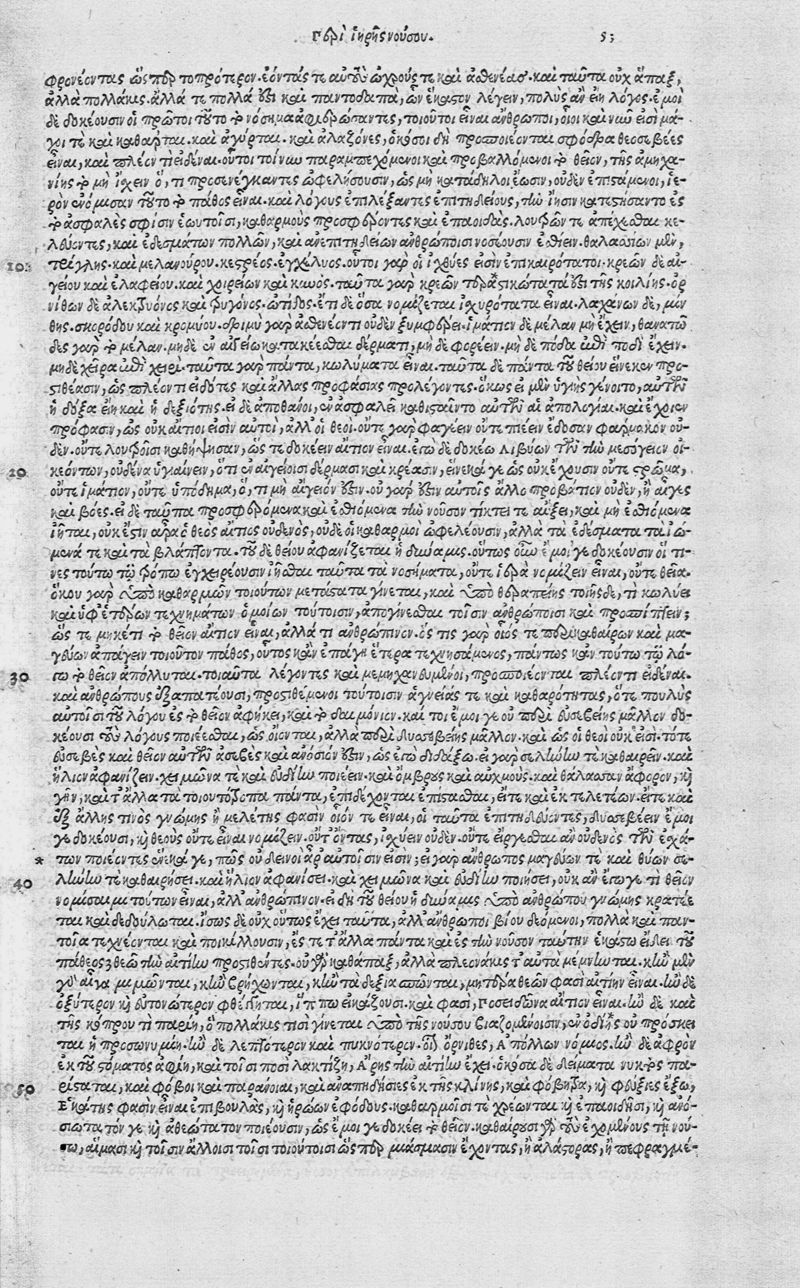 Περὶ ἱερῆς νούσου. 53
φρονέοντας ὥσπερ τοπρότερον. ἐόντάς τε αὐτοὺς ὠχρούς τε καὶ ἀσθενέας. καὶ ταῦτα οὐχ ἅπαξ,
ἀλλὰ πολλάκις. ἀλλά τε πολλά ἐστι καὶ παντοδαπὰ, ὧν ἕκαστον λέγειν, πολὺς ἂν εἴη λόγος. ἐμοὶ
δὲ δοκέουσιν οἱ πρῶτοι τοῦτο τὸ νόσημα ἀφιερώσαντες, τοιοῦτοι εἶναι ἄνθρωποι, οἷοι καὶ νῦν εἰσὶ μά-
γοι τε καὶ καθάρται. καὶ ἀγύρται. καὶ ἀλαζόνες, ὁκόσοι δὴ προσποιέονται σφόδρα θεοσεβέες
εἶναι, καὶ πλέον τὶ εἰδέναι. οὗτοι τοίνυν παραμπεχόμενοι καὶ προβαλλόμενοι τὸ θεῖον, τῆς ἀμηχα-
νίης τὸ μὴ ἴχειν ὅ, τι προσενέγκαντες ὠφελήσουσιν, ὡς μὴ κατάδηλοι ἔωσιν, οὐδὲν ἐπιστάμενοι, ἱε-
ρὸν ἐνόμισαν τοῦτο τὸ πάθος εἶναι. καὶ λόγους ἐπιλέξαντες ἐπιτηδείους, τὴν ἴησιν κατεστήσαντο ἐς
τὸ ἀσφαλὲς σφίσιν ἑωυτοῖσι, καθαρμοὺς προσφέροντες καὶ ἐπαοιδάς. λουτρῶν τε ἀπέχεσθαι κε-
λεύοντες, καὶ ἐδεσμάτων πολλῶν, καὶ ἀνεπιτηδείων ἀνθρώποισι νοσέουσιν ἐσθίειν. θαλασσίων μὲν,
10. τρίγλης. καὶ μελανούρου. κεστρέος. ἐγχέλυος. οὗτοι γὰρ οἱ ἰχθύες εἰσὶν ἐπικαιρότατοι. κρεῶν δὲ αἰ-
γείου καὶ ἐλαφείου. καὶ χοιρείων καὶ κυνός. ταῦτα γὰρ κρεῶν ταρακτικώτατά ἐστι τῆς κοιλίης. ὀρ
νίθων δὲ ἀλεκτρυόνος καὶ τρυγόνος. ὠτίδος. ἔτι δὲ ὅσα νομίζεται ἰσχυρότατα εἶναι. λαχάνων δὲ, μίν
θης. σκορόδου καὶ κρομύου. δριμὺ γὰρ ἀσθενέοντι οὐδὲν ξυμφέρει. ἱμάτιον δὲ μέλαν μὴ ἔχειν, θανατῶ
δες γὰρ τὸ μέλαν. μηδὲ ἐν αἰγείῳ κατακέεσθαι δέρματι, μὴ δὲ φορέειν. μὴ δὲ πόδα ἐπὶ ποδὶ ἔχειν.
μηδὲ χεῖρα ἐπὶ χειρί. ταῦτα γὰρ πάντα, κωλύματα εἶναι. ταῦτα δὲ πάντα τοῦ θείου ἕνεκεν προ-
στιθέασιν, ὡς πλέον τι εἰδότες καὶ ἄλλας προφάσιας προλέγοντες. ὅκως εἰ μὲν ὑγιὴς γένοιτο, αὐτῶν
ἡ δόξα εἴη καὶ ἡ δεξιότης. εἰ δὲ ἀποθάνοι, ἐν ἀσφαλεῖ καθισταῖντο αὐτῶν αἱ ἀπολογίαι. καὶ ἔχοιεν
πρόφασιν, ὡς οὐκ αἴτιοι εἰσὶν αὐτοὶ, ἀλλ' οἱ θεοί. οὔτε γὰρ φαγέειν οὔτε πιέειν ἔδοσαν φάρμακον οὐ-
δέν. οὔτε λουτροῖσι καθήψησαν, ὥς τε δοκέειν αἴτιον εἶναι. ἐγὼ δὲ δοκέω Λιβύων τῶν τὴν μεσόγειον οἰ-
20 κεόντων, οὐδένα ὑγιαίνειν, ὅτι ἐν αἰγείοισι δέρμασι καὶ κρέασιν, εἰνεκά γε ὡς οὐκ ἔχουσιν οὔτε στρῶμα,
οὔτε ἱμάτιον, οὔτε ὑπόδημα, ὅ, τι μὴ αἴγειόν ἐστιν. οὐ γάρ ἐστιν αὐτοῖς ἄλλο προβάτιον οὐδὲν, ἢ αἶγες
καὶ βόες. εἰ δὲ ταῦτα προσφερόμενα καὶ ἐσθιόμενα τὴν νοῦσον τίκτει τε αὔξει, καὶ μὴ ἐσθιόμενα
ἰῆται, οὐκ ἔστιν ἄρα ὁ θεὸς αἴτιος οὐδενὸς, οὐδὲ οἱ καθαρμοὶ ὠφελέουσιν, ἀλλὰ τὰ ἐδέσματα τὰ ἰώ-
μενά τε καὶ τὰ βλάπτοντα. τοῦ δὲ θείου ἀφανίζεται ἡ δύναμις. οὕτως οὖν ἔμοι γε δοκέουσιν οἵ τι-
νες τούτῳ τῷ τρόπῳ ἐγχειρέουσιν ἰῆσθαι ταῦτα τὰ νοσήματα, οὔτε ἱερὰ νομίζειν εἶναι, οὔτε θεῖα.
ὅκου γὰρ ὑπὸ καθαρμῶν τοιούτων μετάστατα γίνεται, καὶ ὑπὸ θεραπείης τοιῆσδε, τί κωλύει
καὶ ὑφ' ἑτέρων τεχνημάτων ὁμοίων τούτοισιν, ἀπογίνεσθαι τοῖσιν ἀνθρώποισι καὶ προσπίπτειν;
ὥς τε μηκέτι τὸ θεῖον αἴτιον εἶναι, ἀλλά τι ἀνθρώπινον. ὅς τις γὰρ οἷός τε περικαθαίρων καὶ μα-
γεύων ἀπάγειν τοιοῦτον πάθος, οὗτος κἂν ἐπάγῃ ἕτερα τεχνησάμενος, πάντως κἂν τούτῳ τῷ λό-
30 γῳ τὸ θεῖον ἀπόλλυται. τοιαῦτα λέγοντες καὶ μεμηχανευμένοι, προσποιέονται πλέον τι εἰδέναι.
καὶ ἀνθρώπους ἐξαπατέουσι, προστιθέμενοι τούτοισιν ἁγνείας τε καὶ καθαρότητας, ὅτε πουλὺς
αὐτοῖσι τοῦ λόγου ἐς τὸ θεῖον ἀφήκει, καὶ τὸ δαιμόνιον. καί τοι ἔμοι γε οὐ περὶ εὐσεβείης μᾶλλον δο-
κέουσι τοὺς λόγους ποιέεσθαι, ὡς οἴονται, ἀλλὰ περὶ δυσσεβείης μᾶλλον. καὶ ὡς οἱ θεοὶ οὐκ εἰσί. τό τε
εὐσεβὲς καὶ θεῖον αὐτῶν ἀσεβὲς καὶ ἀνόσιόν ἐστιν, ὡς ἐγὼ διδάξω. εἰ γὰρ σελήνην τε καθαιρεῖν. καὶ
ἥλιον ἀφανίζειν. χειμῶνα τε καὶ εὐδίην ποιέειν. καὶ ὄμβρους καὶ αὐχμούς. καὶ θάλασσαν ἄφορον, κὴ
γῆν, καὶ τἄλλα τὰ τοιουτότροπα πάντα, ἐπιδέχονται ἐπίστασθαι, εἴτε καὶ ἐκ τελετέων. εἴτε καὶ
ἐξ ἄλλης τινὸς γνώμης ἢ μελέτης φασὶν οἷόν τε εἶναι, οἱ ταῦτα ἐπιτηδεύοντες, δυσσεβέειν ἔμοι
γε δοκέουσι, καὶ θεοὺς οὔτε εἶναι νομίζειν. οὔτ' ὄντας, ἰσχύειν οὐδὲν. οὔτε εἴργεσθαι ἂν οὐδενὸς τῶν ἐσχά-
* των ποιέοντες ἕνεκά γε, πῶς οὐ δεινοὶ ἄρ' αὐτοῖσιν εἰσίν; εἰ γὰρ ἄνθρωπος μαγεύων τε καὶ θύων σε-
40 λήνην τε καθαιρήσει. καὶ ἥλιον ἀφανίσει. καὶ χειμῶνα καὶ εὐδίην ποιήσει, οὐκ ἂν ἔγωγε τὶ θεῖον
νομίσαιμι τούτων εἶναι, ἀλλ' ἀνθρώπινον. εἰ δὴ τοῦ θείου ἡ δύναμις ὑπὸ ἀνθρώπου γνώμης κρατέε
ται καὶ δεδούλωται. ἴσως δὲ οὐχ οὕτως ἔχει ταῦτα, ἀλλ' ἄνθρωποι βίου δεόμενοι, πολλὰ καὶ παν-
τοῖα τεχνέονται καὶ ποικίλλουσιν, ἔς τε τἄλλα πάντα καὶ ἐς τὴν νοῦσον ταύτην ἑκάστῳ εἴδει τοῦ
πάθεος, θεῷ τὴν αἰτίην προστιθέντες. οὐ γὰρ καθάπαξ, ἀλλὰ πλεονάκις ταῦτα μέμνηνται. κἢν μὲν
γὰρ αἶγα μιμῶνται, κἢν βρύχωνται, κἢν τὰ δεξιὰ σπῶνται, μητέρα θεῶν φασὶ αἰτίην εἶναι. ἢν δὲ
ὀξύτερον καὶ εὐτονώτερον φθέγγηται, ἵππῳ εἰκάζουσι. καὶ φασὶ, Ποσειδῶνα αἴτιον εἶναι. ἢν δὲ καὶ
τῆς κόπρου τὶ παρῇ, ὃ πολλάκις τισὶ γίνεται ὑπὸ τῆς νούσου βιαζομένοισιν, ἐνοδίης οὐ πρόσκει
ται ἡ προσωνυμίη. ἢν δὲ λεπτότερον καὶ πυκνότερον οἷον ὄρνιθες, Ἀπόλλων νόμιος. ἢν δὲ ἀφρὸν
ἐκ τοῦ στόματος ἀφίῃ, καὶ τοῖσι ποσὶ λακτίζῃ, Ἄρης τὴν αἰτίην ἔχει. ὁκόσα δὲ δείματα νυκτὸς πα-
50 ρίσταται, καὶ φόβοι καὶ παράνοιαι, καὶ ἀναπηδήσιες ἐκ τῆς κλίνης, καὶ φόβητρα, καὶ φεύξιες ἔξω,
Ἑκάτης φασὶν εἶναι ἐπιβουλὰς, καὶ ἡρώων ἐφόδους. καθαρμοῖσί τε χρέωνται καὶ ἐπαοιδῇσι, καὶ ἀνό-
σιώτατόν γε καὶ ἀθεώτατον ποιέουσιν, ὡς ἔμοι γε δοκέει τὸ θεῖον. καθαίρουσι γὰρ τοὺς ἐχομένους τῇ νού-
σῳ, αἵμασι καὶ τοῖσιν ἄλλοισι τοῖσι τοιούτοισι ὥσπερ μιάσμασιν ἔχοντας, ἢ ἀλάστορας, ἢ πεφραγμέ-